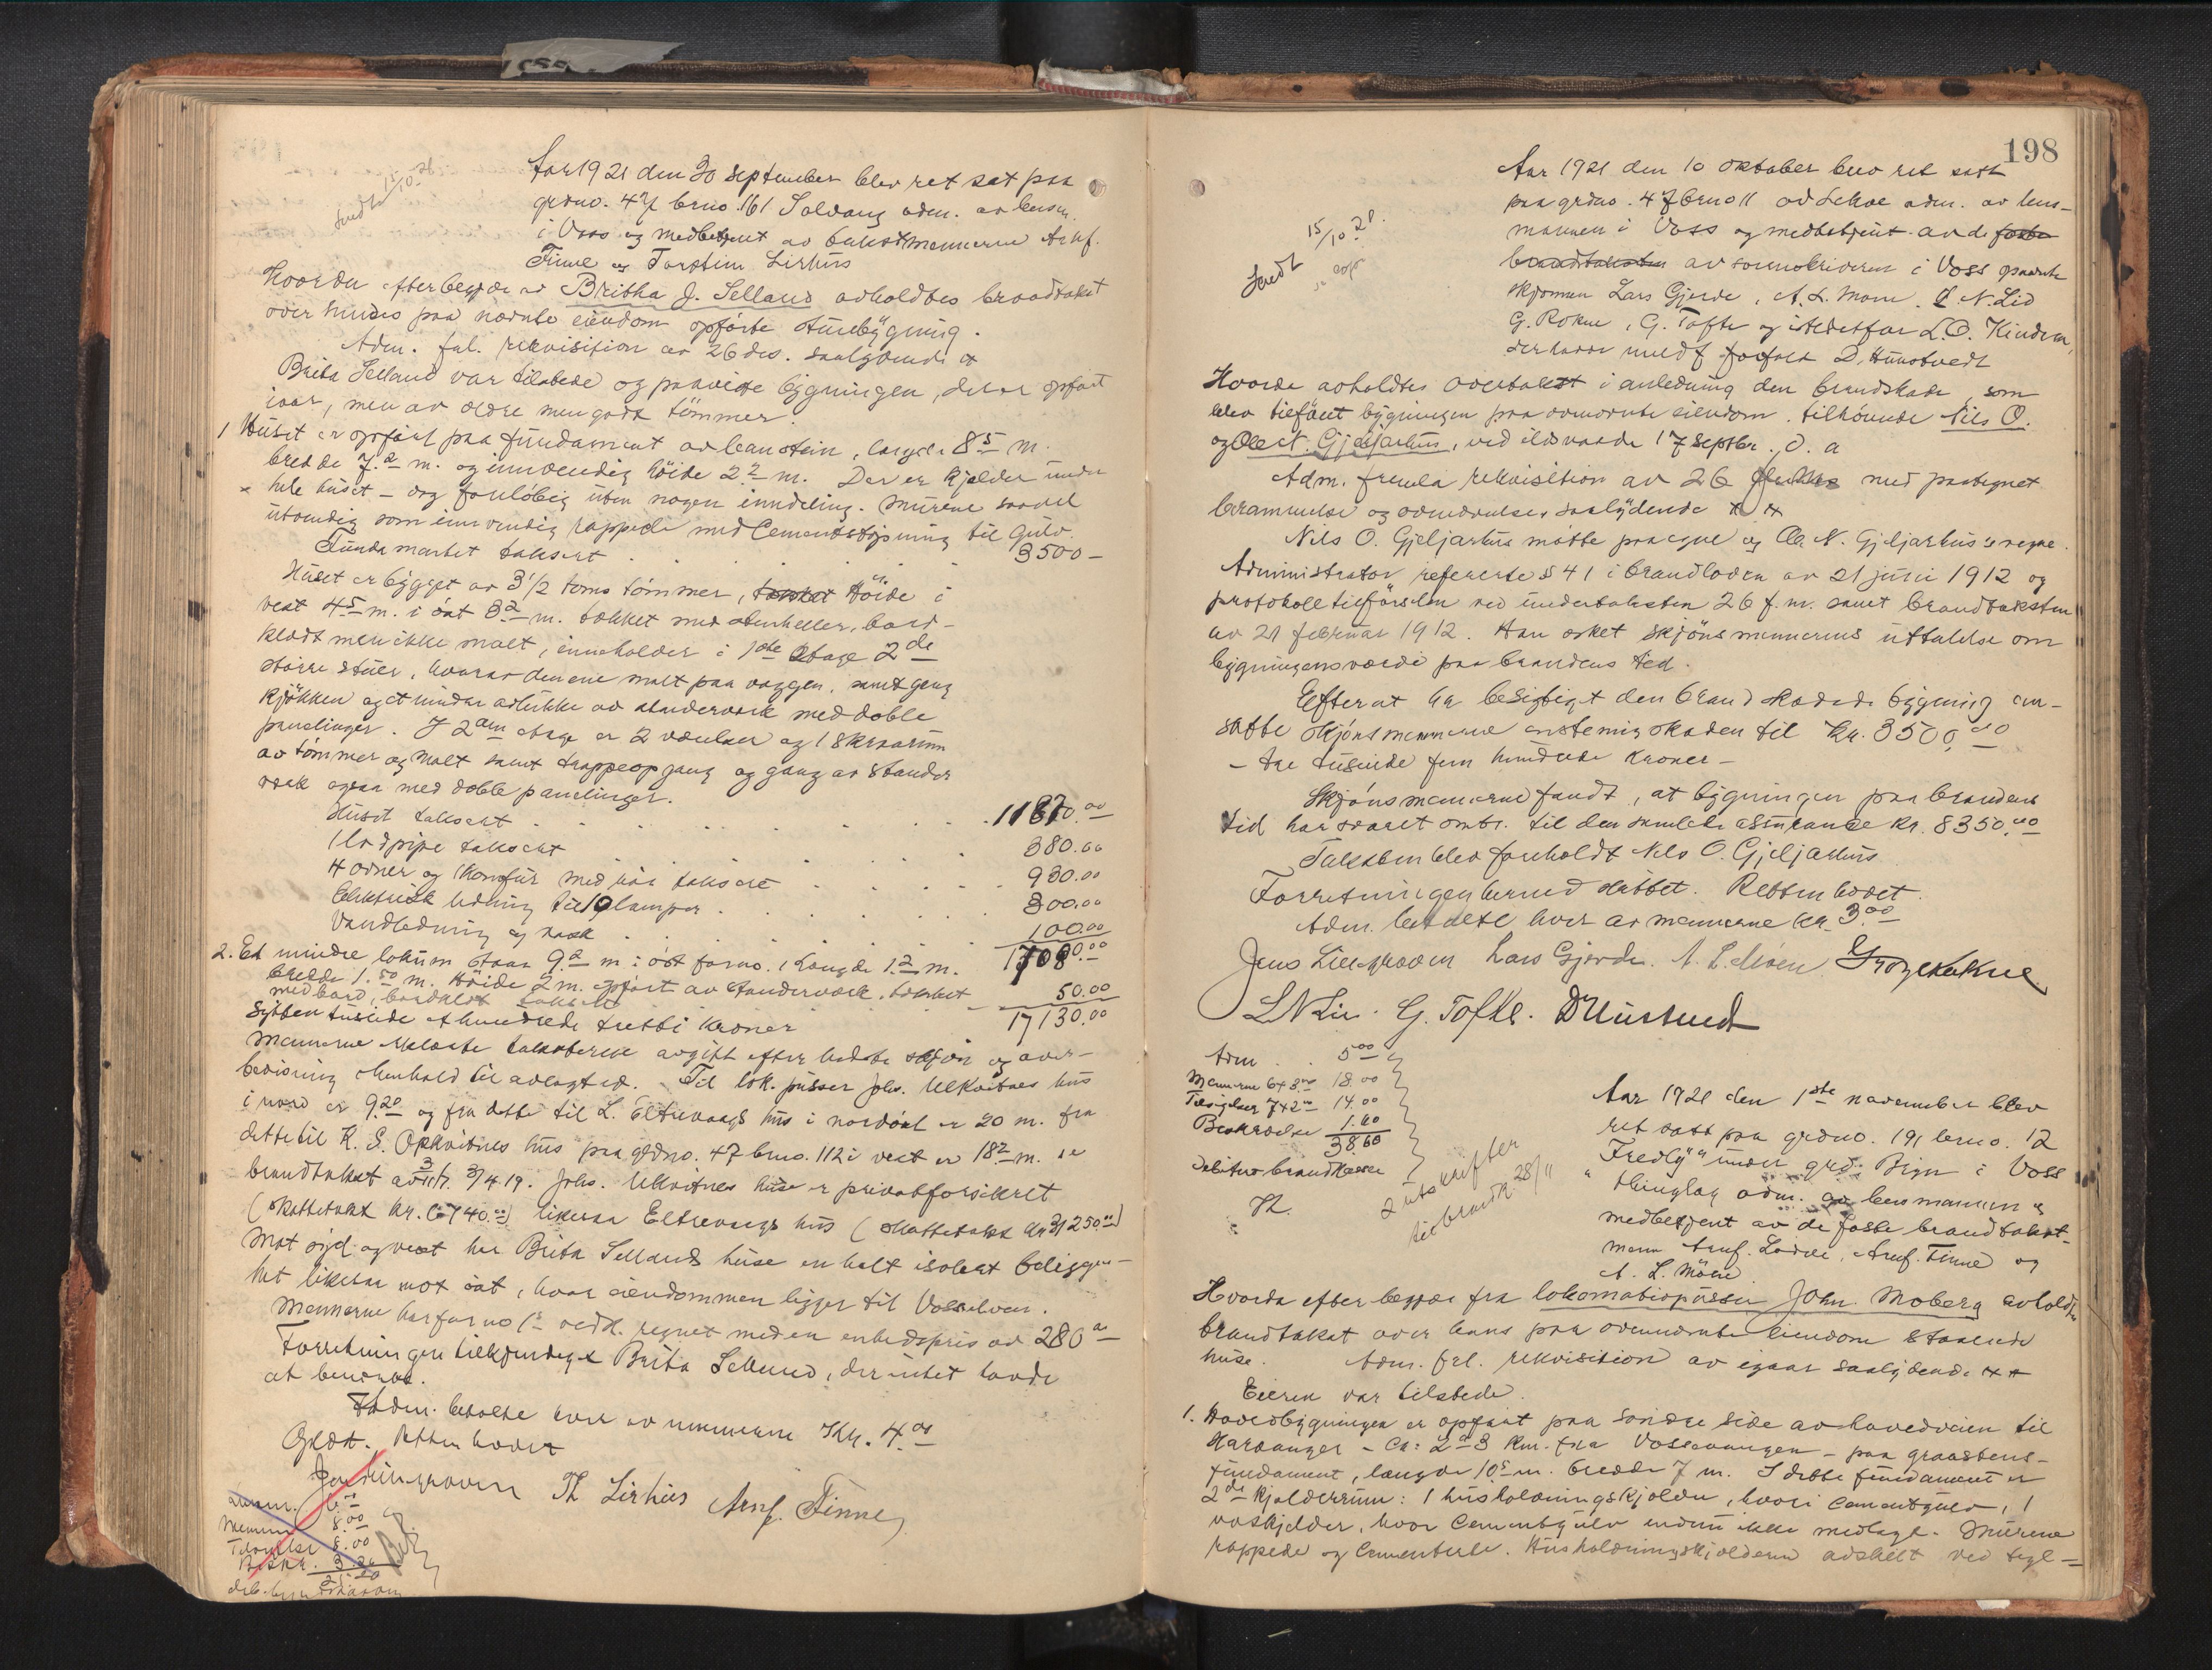 Sendt 15/10 21
Aar 1921 den 30 september blev ret sat paa
grdno. 47 brno. 161 Solvang adm. av lensm.
i Voss og medbetjent av takstmennerne Arnf.
Finne og Torstein Lirhus
Hvorda efter begjær av Britha J. Selland avholdtes brandtakst
over hendes paa nævnte eiendom opførte stuebygning.
Adm. ful. rekvisition av 26 ds. saalydende
Brita Selland var tilstede og paaviste bygningen, det er opført
iaar, men av ældre men godt tømmer.
1 Huset er opført paa fundament av , længde 8⁵ m.
bredde 7.² m. og innvendig høide 2² m. Der er kjelder under
hele huset – dog foreløbig uten nogen inndeling. Murene saavel
utvendig som innvendig rappede med Cementstøpning til Gulv.
Fundamentet taksert 3500 –
Huset er bygget av 3 1/2 toms tømmer, Høide i
vest 4⁵ m. i øst 3² m. tækket med stenheller, bord-
klædt men ikke malt, inneholder i 1ste Etage 2de
større stuer, hvorav den ene malt paa væggen, samt gang
kjøkken og et mindre avlukke av standerverk med doble
panelinger. I 2den etage er 2 værelser og 1 skraarum
av tømmer og malt samt trappeopgang og gang av stander
verk ogsaa med doble panelinger.
Huset taksert 11870.00
1 lodpipe taksert 380.00
4 ovner og 1 komfur med rør taksert 930.00
Elektrisk ledning til 10 lamper 300.00
Vandledning og vask 100.00
17080.00
2. Et mindre lokum staar 9.² m i øst for no. 1 Længde 1.² m.
bredde 1.⁵⁰ m. Høide 2 m. opført av standerverk, tækket
med bord, bordklædt taksert 50.00
Sytten tusinde et hundrede tretti kroner 17130.00
Mennerne erklærte taksterne avgitt efter bedste skjøn og over-
bevisning i henhold til avlagt ed. Til lok. pusser Johs. Ulkvitnes hus
i nord er 9.20 og fra dette til L. Eltrevaags hus i nordøst er 20 m. fra
dette til K. S. Opkvitnes hus paa grdno. 47 brno. 112 i vest er 18² m. se
brandtakst av 3/4 19. Johs. Ulkvitnes huse er privatforsikret
(skattetakst kr. 6740.00) likesaa Eltrevaags hus (skattetakst kr 31250.00)
Mot syd og vest har Brita Sellands huse en helt isolert beliggen-
het likesaa mot øst, hvor eiendommen ligger til Vosselven.
Mennerne har for no 1s vedk. regnet med en enhedspris av 280 00
Forretningen tilkjendegitt Brita Selland, der intet havde
at bemerke.
Adm. betalte hver av mennerne Kr. 4.00
Oplæst. Retten hævet
Jens Lillegraven Th Lirhus Arnf. Finne
Adm.
Mennene 8.00
Tilsigelse 8.00
Beskr. 3.20

198
Sendt 15/10 21.
Aar 1921 den 10 oktober blev ret satt
paa grdno. 47 brno 11 av adm. av lens-
mannen i Voss og medbetjent av de faste
brandtakstm av sorenskriveren i Voss opnævnte
skjønmen Lars Gjerde, A. L. Moen, L. N. Lid
G. Rokne, G. Tofte og istedetfor L. O. Kindem,
der havde meldt forfald D. Hunstvedt
Hvorda avholdtes overtakst i anledning den brandskade, som
blev tilføiet bygningen paa ovennævnte eiendom tilhørende Nils O.
og Ole N. Gjeljarhus, ved ildsvaade 17 septbr. d. a
Adm. fremla rekvisition av 26 med paategnet
berammelse og opnævnelse, saalydende
Nils O. Gjeljarhus møtte paa egne og Ole N. Gjeljarhus's vegne.
Administrator refererte § 41 i brandloven av 21 juni 1912 og
protokolltilførselen ved undertaksten 26 f. m. samt brandtaksten
av 21 februar 1912. Han æsket skjønsmennernes uttalelse om
bygningens værdi paa brandens tid.
Efter at ha besigtiget den brandskadede bygning an-
satte skjønsmennerne enstemig skaden til Kr. 3500,00
– tre tusinde fem hundrede kroner –
Skjønsmennerne fandt, at bygningen paa brandens
tid har svaret omtr. til den samlede assurance kr. 8350.00
Taksten blev foreholdt Nils O. Gjeljarhus.
Forretningen hermed sluttet. Retten hævet.
Adm. betalte hver av mennerne kr. 3.00
Jens Lillegraven Lars Gjerde. A. L. Moen
L N Lid. G. Tofte. D Hunstvedt
Adm 5 00
Mennerne 6 x 3.00 18.00
Tilsigelser 7 x 2 00 14.00
Beskrivelse 1.60
38.60
Debitur brandkassen
2 utskrifter
til brandk. 28/11
Aar 1921 den 1ste november blev
ret satt paa grdno. 191 brno. 12
"Fredly" under grd. Bign i Voss
thinglag adm. av lensmannen og
medbetjent av de faste brandtakst-
menn Arnf. , Arnf. Finne og
A. L. Møen
Hvorda efter begjær fra lokomotivpusser John. Moberg avholdtes
brandtakst over hans paa ovennævnte eiendom staaende
huse. Adm. frl. rekvisition av igaar saalydende
Eieren var tilstede.
1. Hovedbygningen er opført paa søndre side av hovedveien til
Hardanger – Ca: 2 á 3 km. fra Vossevangen – paa graastens-
fundament, længde 10⁵ m. bredde 7 m. I dette fundament er
2de kjelderrum: 1 husholdningskjelder, hvori Cementgulv, 1
vaskjelder, hvor Cementgulv endnu ikke medlagt. Murene
rappede og Cementerte. Husholdningskjelderen adskilt ved tegl=